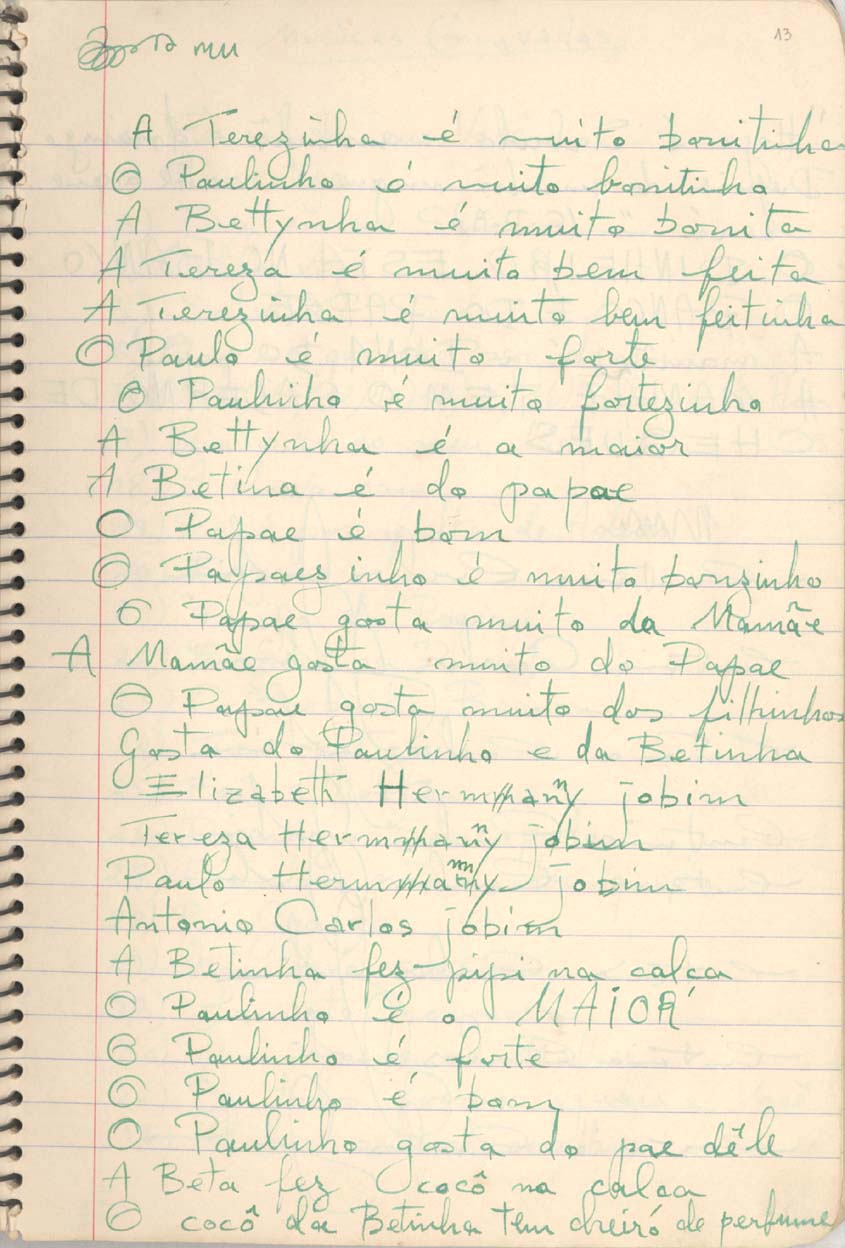 13
mu
A Terezinha é muito bonitinha
O Paulinho é muito bonitinho
A Bettynha é muito bonita
A Tereza é muito bem feita
A Terezinha é muito bem feitinha
O Paulo é muito forte
O Paulinho é muito fortezinho
A Bettynha é a maior
A Betina é do papae
O Papae é bom
O Papaesinho é muito bonzinho
O Papae gosta muito da Mamãe
A Mamãe gosta muito do Papae
O Papae gosta muito dos filhinhos
Gosta do Paulinho e da Betinha
Elizabeth Hermanny jobim
Tereza Hermanny jobim
Paulo Hermanny jobim
Antonio Carlos jobim
A Betinha fez pipi na calça
O Paulinho é o MAIOR
O Paulinho é forte
O Paulinho é bom
O Paulinho gosta do pae dêle
A Beta fez cocô na calça
O cocô da Betinha tem cheiro de perfume